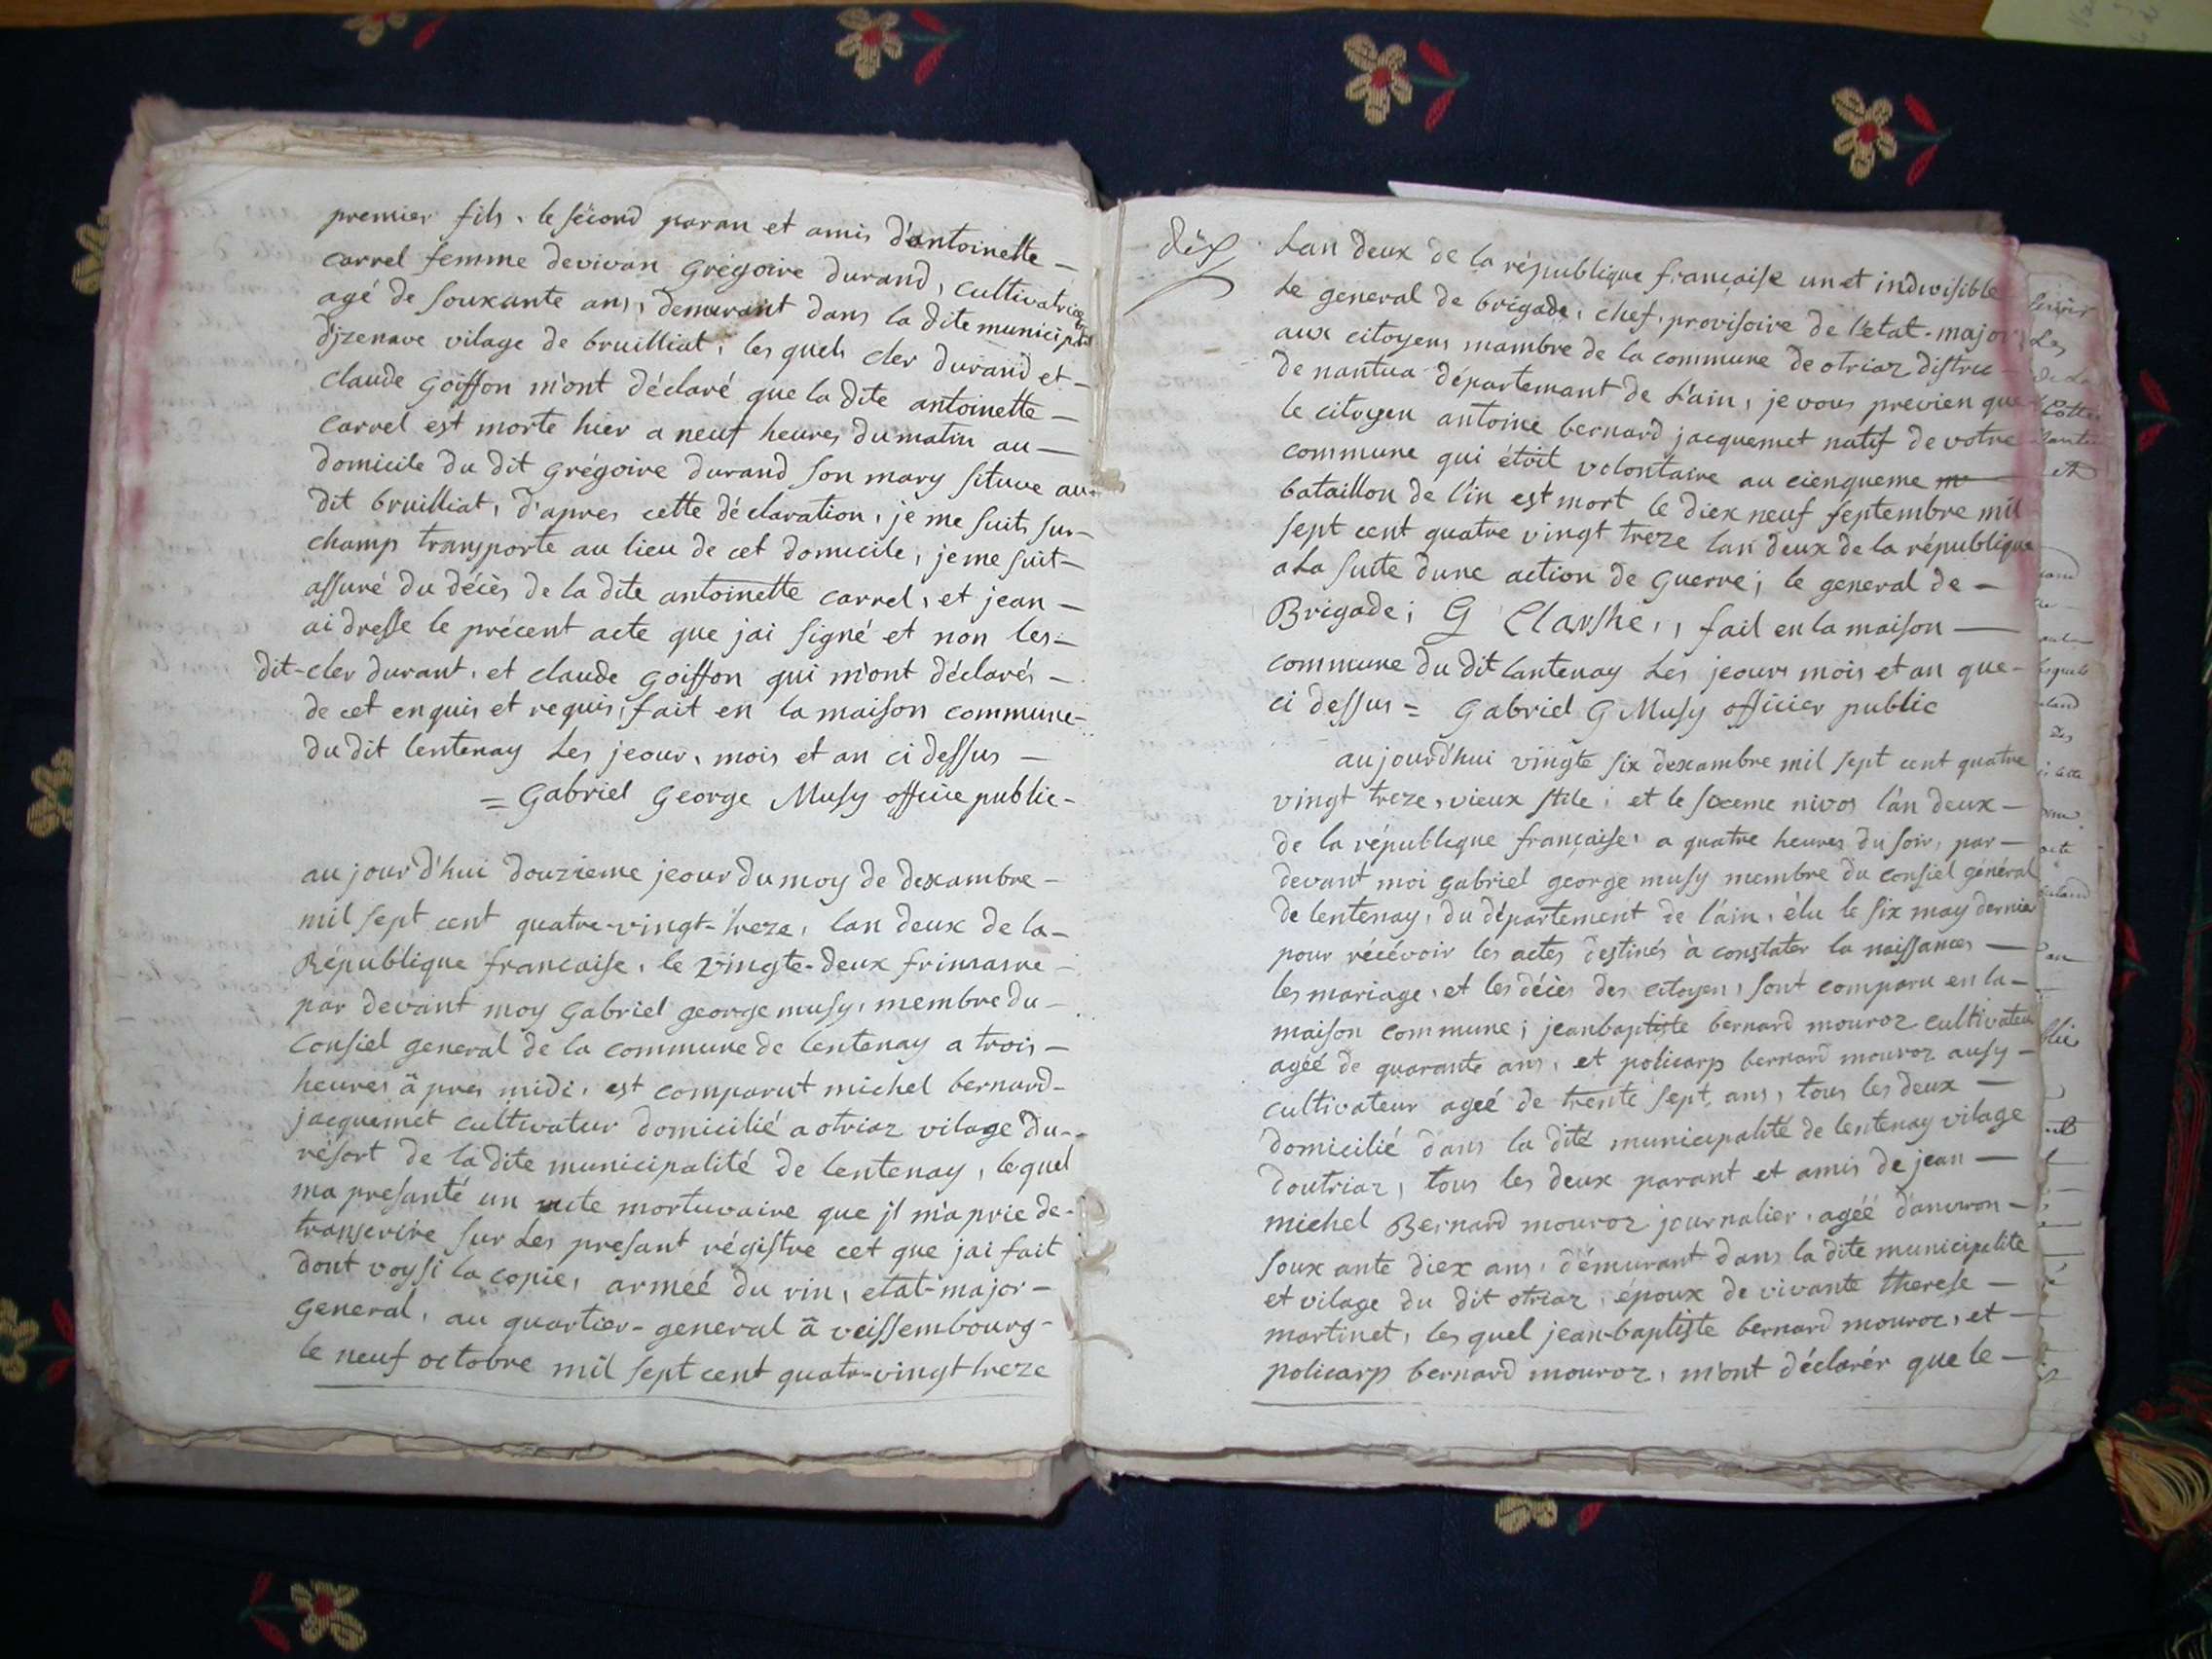 premier fils, le sëcond paran et amis d'antoinette –
carrel femme devivan Grégoire durand, cultivatrice
agé de souxante ans, demurant dans la dite municiplté
d'jzenave vilage de bruilliat, les quels cler durand et –
claude goiffon m'ont déclaré que la dite antoinette –
carrel est morte hier a neuf heures du matin au –
domicile du dit grégoire durand son mary situve au
dit bruilliat, d'apres cette déclaration, je me suits sur –
champ transporte au lieu de cet domicile, je me suit –
assuré du décès de la dite antoinette carrel, et jean –
ai dresse le précent acte que jai signé et non les –
dit-cler durant, et claude goiffon qui m'ont déclarés –
de cet enquis et requis, fait en la maison commune –
du dit lentenay Les jeour, mois et an ci dessus –
= Gabriel George Musy officie public –
aujourd'hui douzieme jeour du moy de dexambre –
mil sept cent quatre-vingt-treze, lan deux de la –
République francaise, le vingte-deux frimaire –
par devant moy Gabriel george musy, membre du –
Consiel general de la commune de lentenay a trois –
heures â pres midi, est comparut michel bernard –
jacquemet cultivatur domicilié a otriaz vilage du –
résort de la dite municipalité de lentenay, le quel
ma presanté un acte mortuvaire que jl m'a prie de –
transcrire sur Les presant régistre cet que jai fait
dont voysi la copie, armeé du rin, etat-major –
general, au quartier-general â veissembourg –
le neuf octobre mil sept cent quatre-vingt treze
dix
Lan deux de la république française un et indivisible
Le general de brigade, chef, provisoire de l'etat-major,
aux citoyens mambre de la commune de otriaz distric –
de nantua départemant de L'ain, je vous previen que
le citoyen antoine bernard jacquemet natif de votre
commune qui étoit volontaire au cienqueme
bataillon de l'in est mort le diex neuf septembre mil
sept cent quatre vingt treze lan deux de la république
a La suite dune action de guerre; le general de –
Brigade; G Clarshe,, fail en la maison –
commune du dit lantenay Les jeours mois et an que –
ci dessus = Gabriel G Musy officier public
aujourd'hui vingte six dexambre mil sept cent quatre
vingt treze, vieux stile; et le sixeme nivos l'an deux –
de la république française, a quatre heures du soir, par –
devant moi gabriel george musy membre du consiel général
de lentenay, du département de l'ain, élu le six may dernier
pour récévoir les actes destinés à constater la naissances –
les mariage, et les décès des citoyen, sont comparu en la –
maison commune; jeanbaptiste bernard mouroz cultivateur
ageé de quarante ans, et policarp bernard mouroz ausy –
cultivateur ageé de trente sept ans, tous les deux –
domicilié dans la dite municipalité de lentenay vilage
doutriaz, tous les deux parant et amis de jean –
michel Bernard mouroz journalier, ageé d'anviron –
soux ante diex ans, démurant dans la dite municipalite
et vilage du dit otriaz, époux de vivante therese –
martinet, les quel jean-baptiste bernard mouroz, et –
policarp bernard mouroz, m'ont déclarér que le –